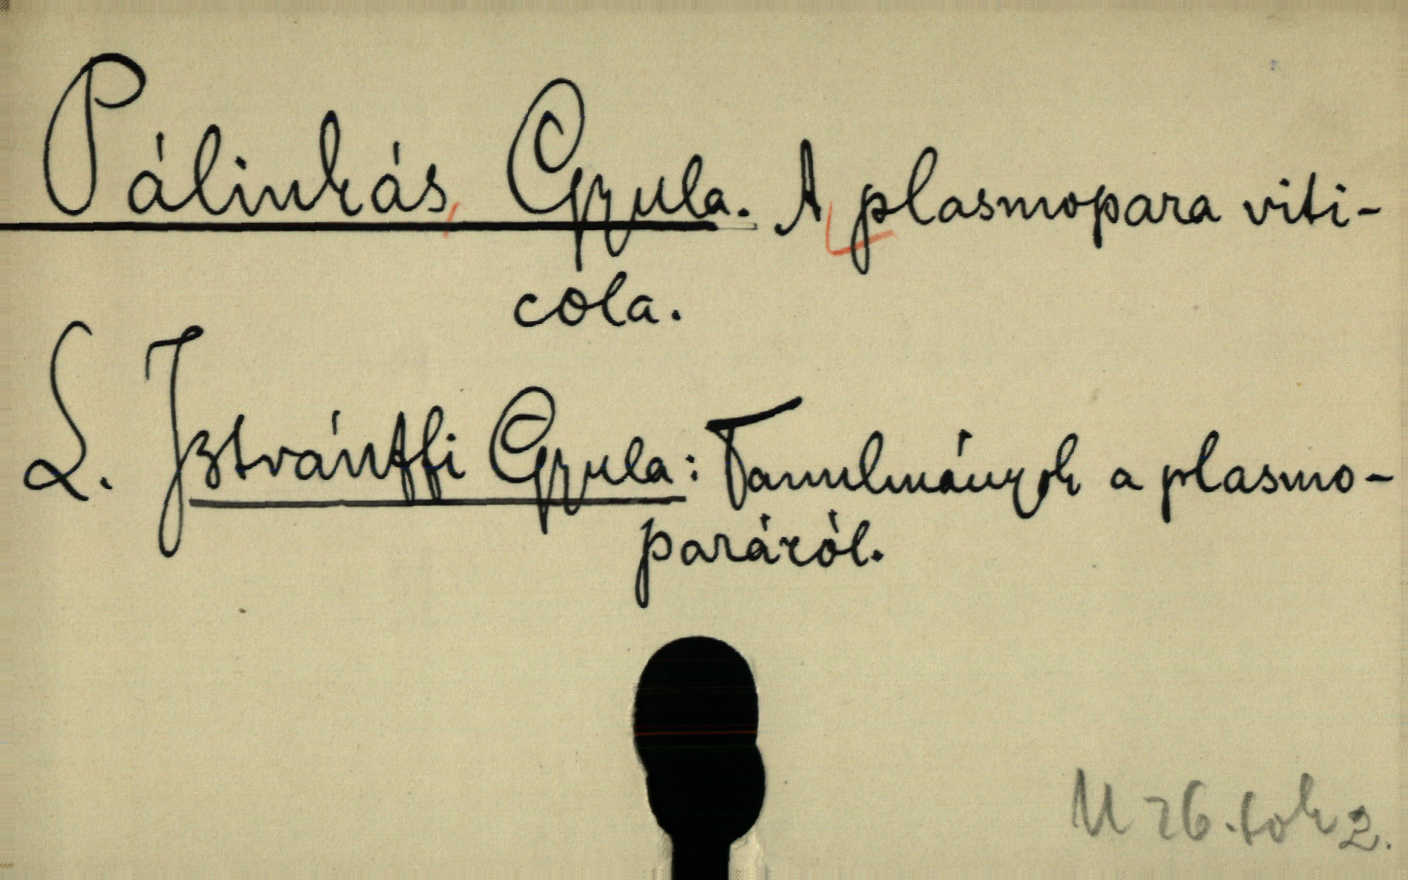 Pálinkás Gyula. A plasmopara viti-
cola.
L. Istvánffi Gyula: Tanulmányok a plasmo-
paráról.
U 26. tok 2.